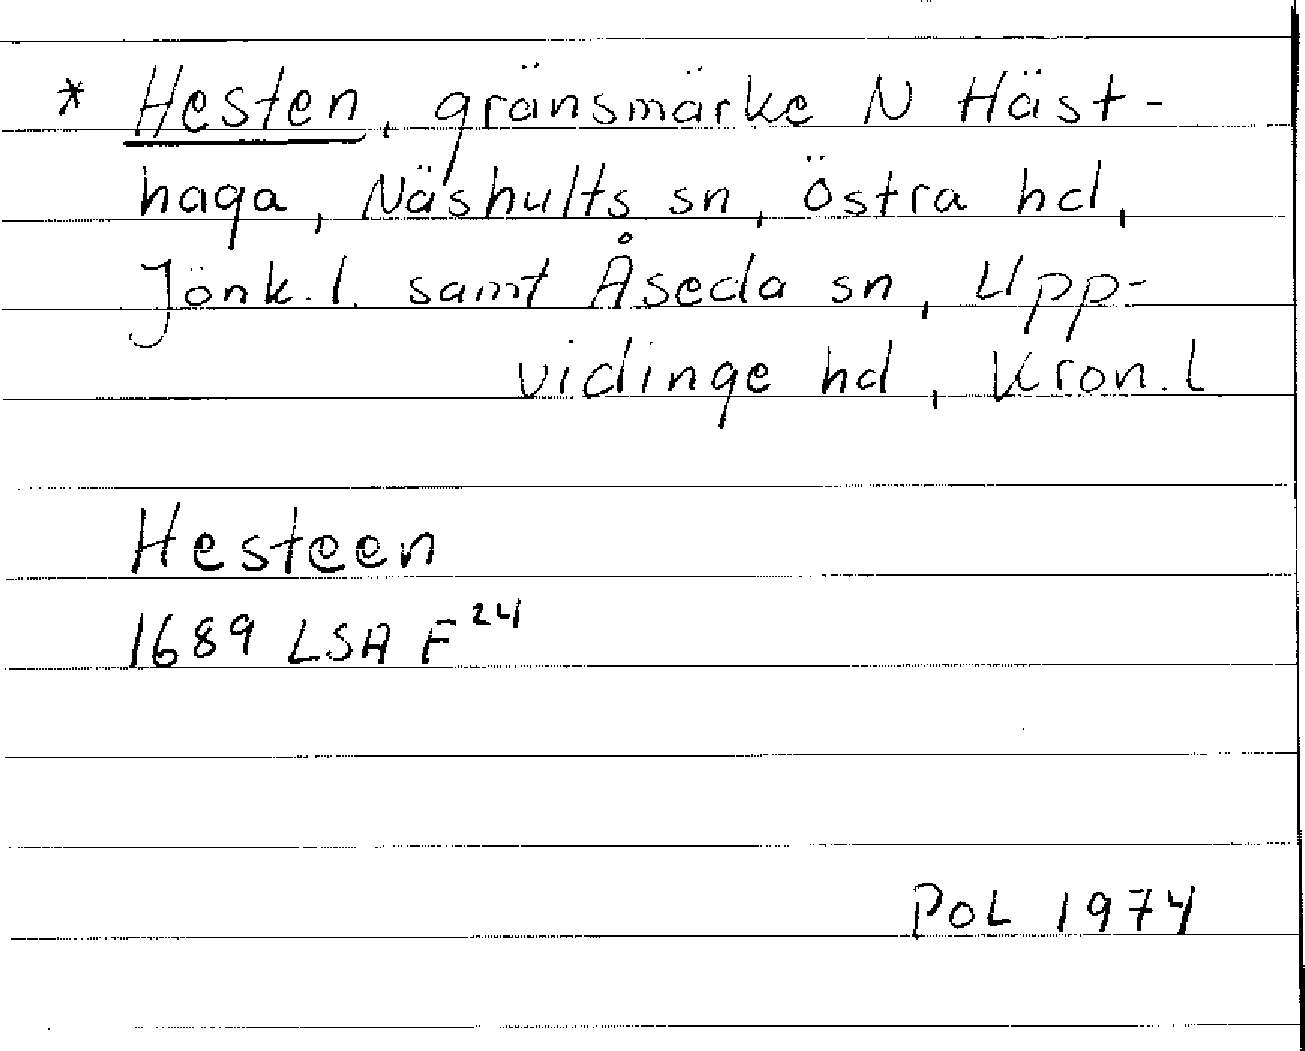 * Hesten, gränsmärke N Häst-
haga, Näshults sn, Östra hd,
Jönk. l. samt Åseda sn, Upp-
vidinge hd, Kron. l
Hesteen
1689 LSA F²⁴
POL 1974